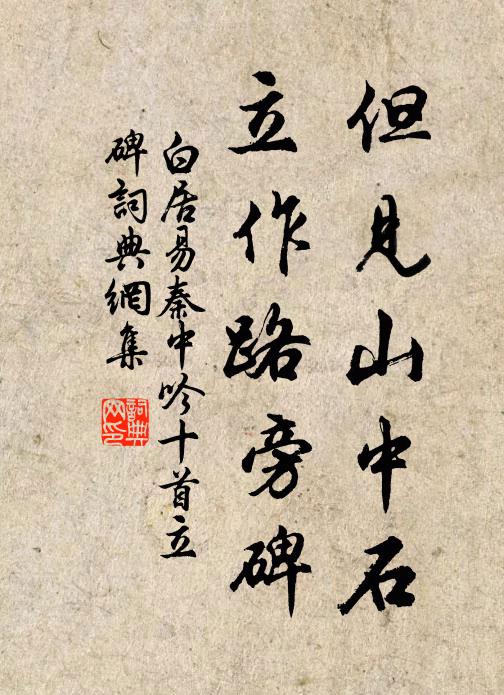 但見山中石
立作路旁碑
白居易秦中吟十首立
碑詞典網集
詞典
网印